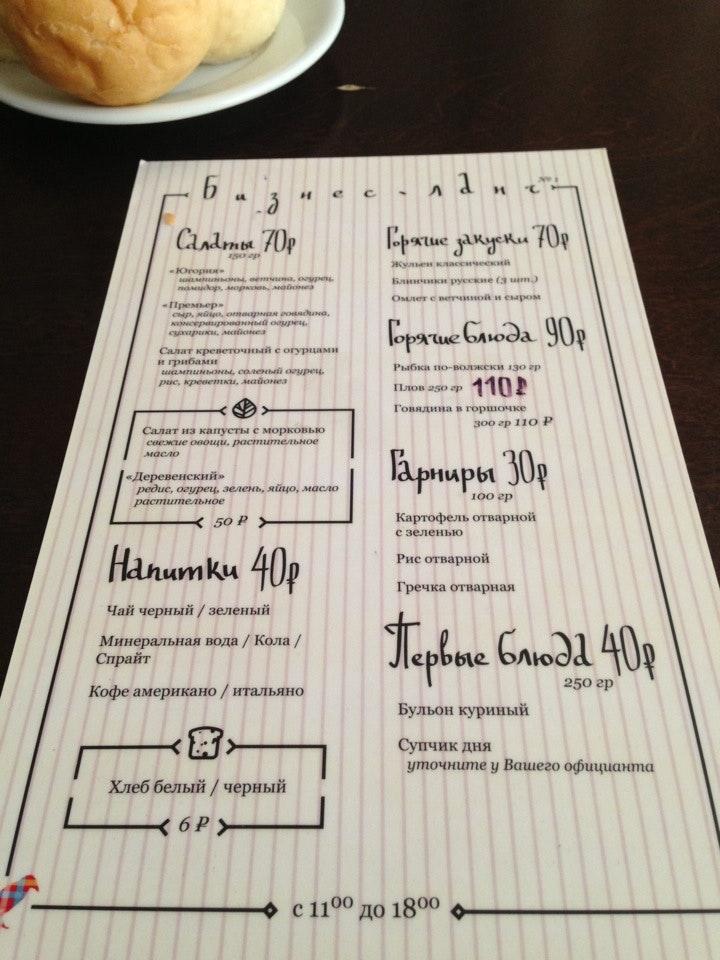 Бизнес-ланч №1
Салаты 70₽
150 гр
«Югория»
шампиньоны, ветчина, огурец,
помидор, морковь, майонез
«Премьер»
сыр, яйцо, отварная говядина,
консервированный огурец,
сухарики, майонез
Салат креветочный с огурцами
и грибами
шампиньоны, соленый огурец,
рис, креветки, майонез
Салат из капусты с морковью
свежие овощи, растительное
масло
«Деревенский»
редис, огурец, зелень, яйцо, масло
растительное
50 ₽
Напитки 40₽
Чай черный / зеленый
Минеральная вода / Кола /
Спрайт
Кофе американо / итальяно
Хлеб белый / черный
6 ₽
Горячие закуски 70₽
Жульен классический
Блинчики русские (3 шт.)
Омлет с ветчиной и сыром
Горячие блюда 90₽
Рыбка по-волжски 130 гр
Плов 250 гр 110₽
Говядина в горшочке
300 гр 110 ₽
Гарниры 30₽
100 гр
Картофель отварной
с зеленью
Рис отварной
Гречка отварная
Первые блюда 40₽
250 гр
Бульон куриный
Супчик дня
уточните у Вашего официанта
с 11⁰⁰ до 18⁰⁰